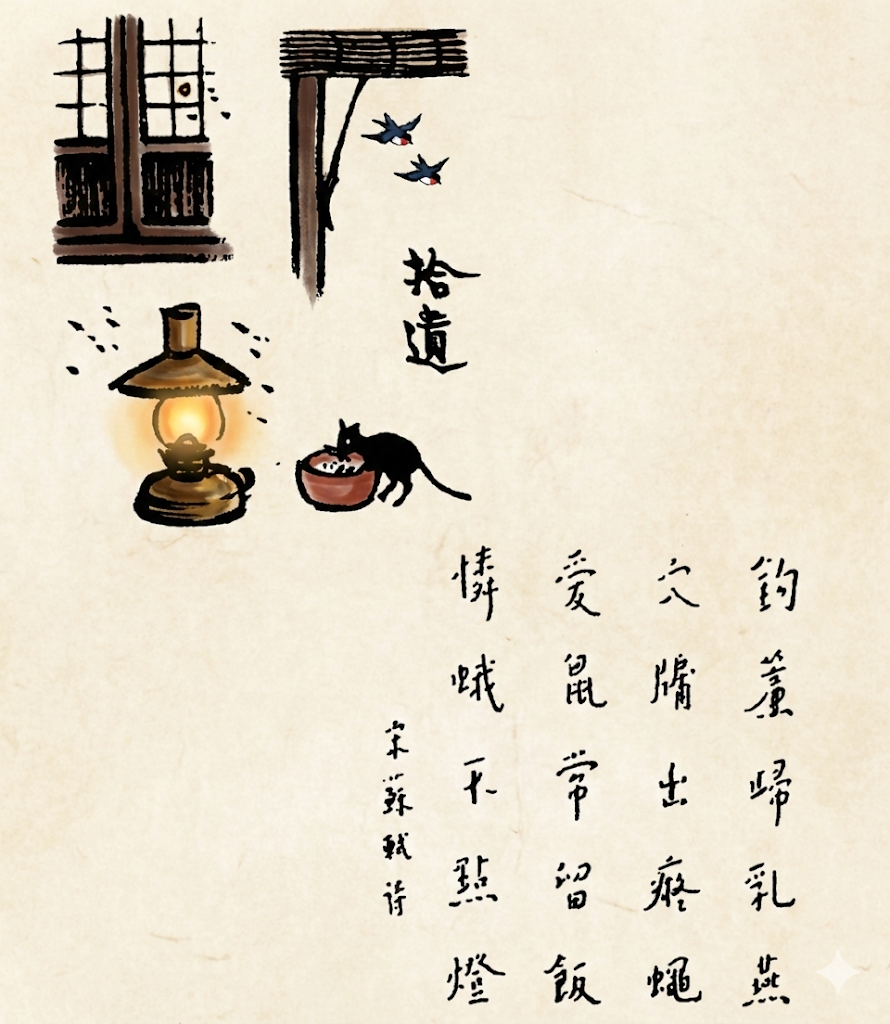 拾遺
鈎簾歸乳燕
穴牖出癡蠅
愛鼠常留飯
憐蛾不點燈
宋蘇軾詩